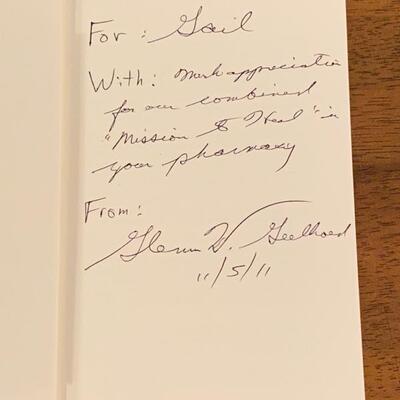 For: Gail
With: Much appreciation
for our combined
"Mission to Heal" in
your pharmacy
From:
Glenn W. Geelhoed
11/5/11